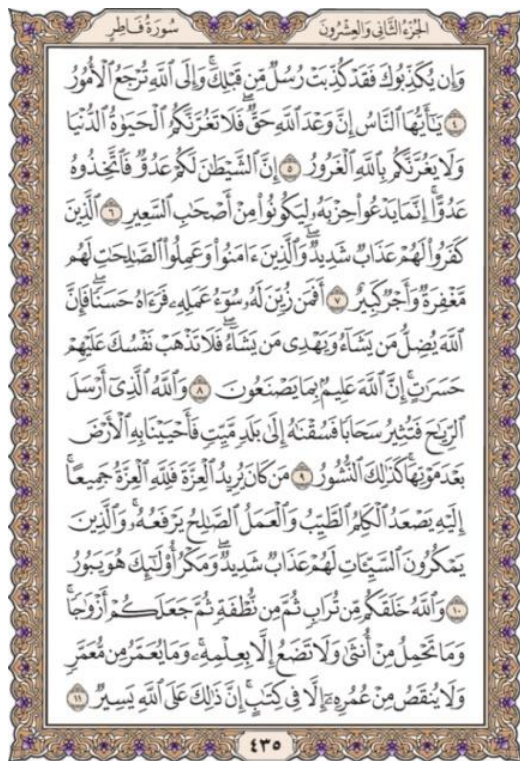 الجزء الثاني والعشرون
سورة فاطر
وَإِن يُكَذِّبُوكَ فَقَدْ كُذِّبَتْ رُسُلٌ مِّن قَبْلِكَ ۚ وَإِلَى ٱللَّهِ تُرْجَعُ ٱلْأُمُورُ
٤ يَـٰٓأَيُّهَا ٱلنَّاسُ إِنَّ وَعْدَ ٱللَّهِ حَقٌّ ۖ فَلَا تَغُرَّنَّكُمُ ٱلْحَيَوٰةُ ٱلدُّنْيَا
وَلَا يَغُرَّنَّكُم بِٱللَّهِ ٱلْغَرُورُ ٥ إِنَّ ٱلشَّيْطَـٰنَ لَكُمْ عَدُوٌّ فَٱتَّخِذُوهُ
عَدُوًّا ۚ إِنَّمَا يَدْعُوا۟ حِزْبَهُۥ لِيَكُونُوا۟ مِنْ أَصْحَـٰبِ ٱلسَّعِيرِ ٦ ٱلَّذِينَ
كَفَرُوا۟ لَهُمْ عَذَابٌ شَدِيدٌ ۖ وَٱلَّذِينَ ءَامَنُوا۟ وَعَمِلُوا۟ ٱلصَّـٰلِحَـٰتِ لَهُم
مَّغْفِرَةٌ وَأَجْرٌ كَبِيرٌ ٧ أَفَمَن زُيِّنَ لَهُۥ سُوٓءُ عَمَلِهِۦ فَرَءَاهُ حَسَنًا ۖ فَإِنَّ
ٱللَّهَ يُضِلُّ مَن يَشَآءُ وَيَهْدِى مَن يَشَآءُ ۖ فَلَا تَذْهَبْ نَفْسُكَ عَلَيْهِمْ
حَسَرَٰتٍ ۚ إِنَّ ٱللَّهَ عَلِيمٌۢ بِمَا يَصْنَعُونَ ٨ وَٱللَّهُ ٱلَّذِىٓ أَرْسَلَ
ٱلرِّيَـٰحَ فَتُثِيرُ سَحَابًا فَسُقْنَـٰهُ إِلَىٰ بَلَدٍ مَّيِّتٍ فَأَحْيَيْنَا بِهِ ٱلْأَرْضَ
بَعْدَ مَوْتِهَا ۚ كَذَٰلِكَ ٱلنُّشُورُ ٩ مَن كَانَ يُرِيدُ ٱلْعِزَّةَ فَلِلَّهِ ٱلْعِزَّةُ جَمِيعًا ۚ
إِلَيْهِ يَصْعَدُ ٱلْكَلِمُ ٱلطَّيِّبُ وَٱلْعَمَلُ ٱلصَّـٰلِحُ يَرْفَعُهُۥ ۚ وَٱلَّذِينَ
يَمْكُرُونَ ٱلسَّيِّـَٔاتِ لَهُمْ عَذَابٌ شَدِيدٌ ۖ وَمَكْرُ أُو۟لَـٰٓئِكَ هُوَ يَبُورُ
١٠ وَٱللَّهُ خَلَقَكُم مِّن تُرَابٍ ثُمَّ مِن نُّطْفَةٍ ثُمَّ جَعَلَكُمْ أَزْوَٰجًا ۚ
وَمَا تَحْمِلُ مِنْ أُنثَىٰ وَلَا تَضَعُ إِلَّا بِعِلْمِهِۦ ۚ وَمَا يُعَمَّرُ مِن مُّعَمَّرٍ
وَلَا يُنقَصُ مِنْ عُمُرِهِۦٓ إِلَّا فِى كِتَـٰبٍ ۚ إِنَّ ذَٰلِكَ عَلَى ٱللَّهِ يَسِيرٌ ١١
٤٣٥